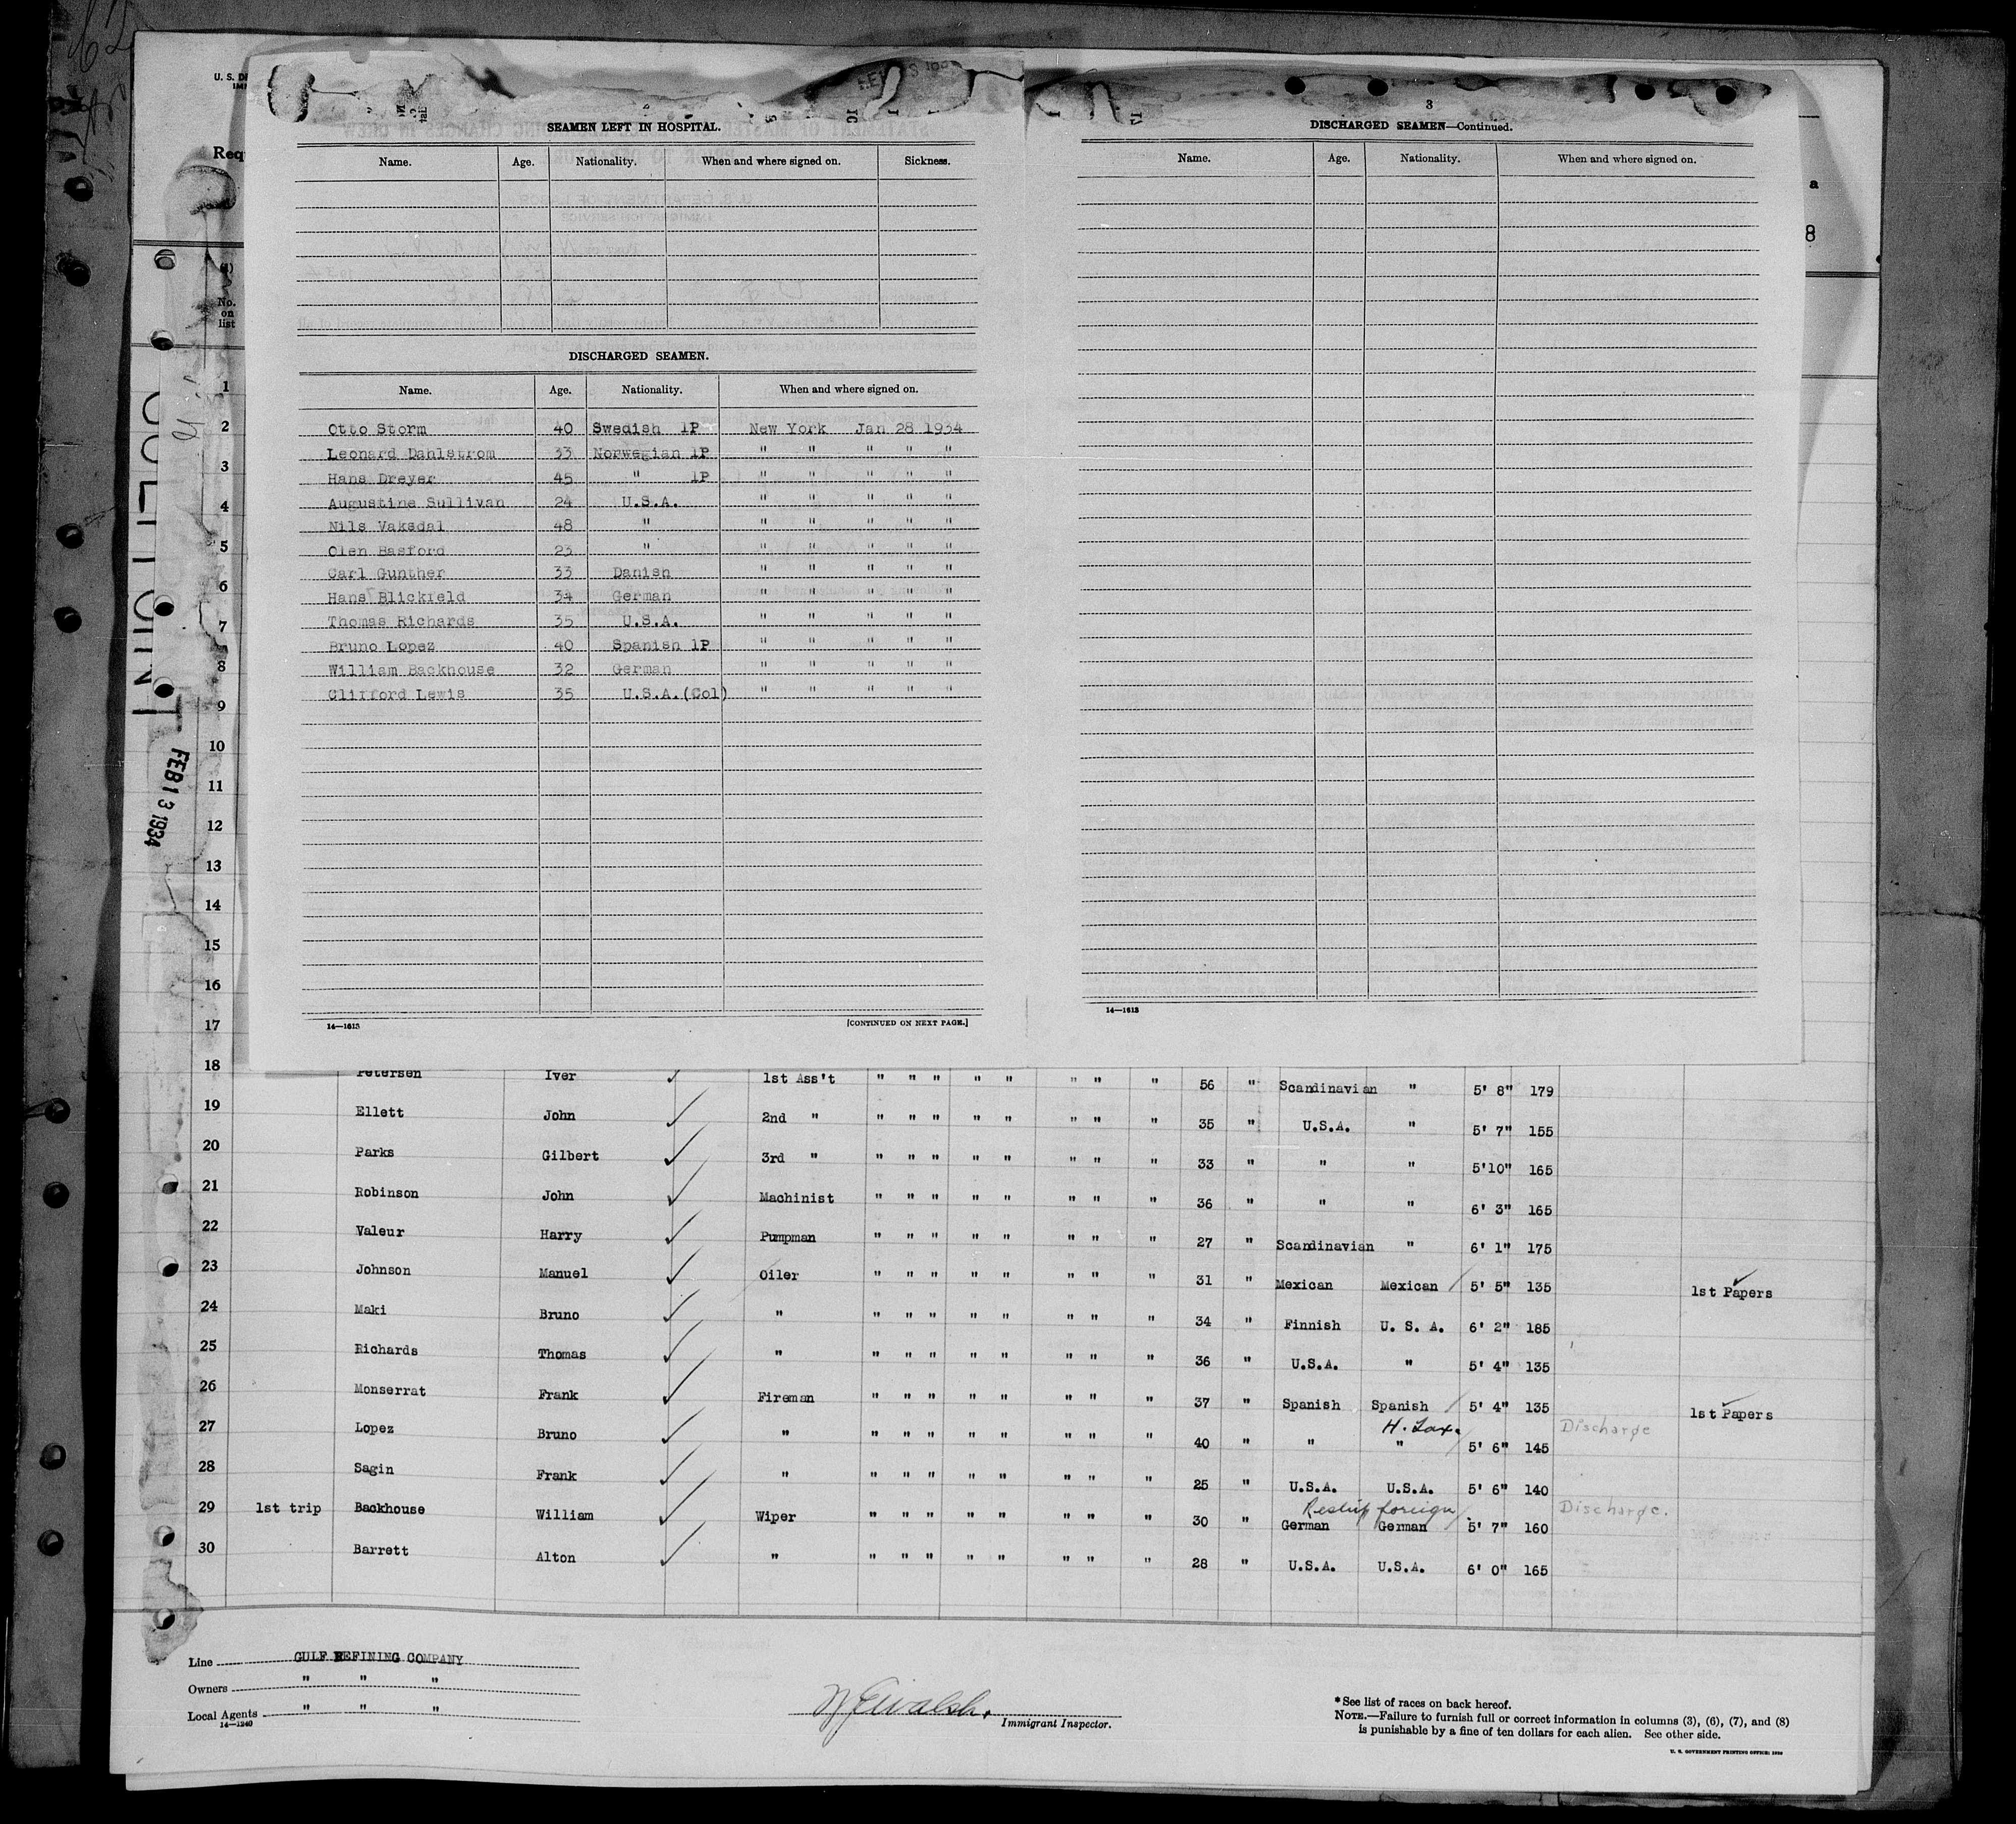 U. S. D
Req
SEAMEN LEFT IN HOSPITAL.
Name. Age. Nationality. When and where signed on. Sickness.
DISCHARGED SEAMEN.
Name. Age. Nationality. When and where signed on.
Otto Storm 40 Swedish 1P New York Jan 28 1934
Leonard Dahlstrom 33 Norwegian 1P " " " " "
Hans Dreyer 45 " 1P " " " " "
Augustine Sullivan 24 U.S.A. " " " " "
Nils Vaksdal 48 " " " " " "
Olen Basford 23 " " " " " "
Carl Gunther 33 Danish " " " " "
Hans Blickfeld 34 German " " " " "
Thomas Richards 35 U.S.A. " " " " "
Bruno Lopez 40 Spanish 1P " " " " "
William Backhouse 32 German " " " " "
Clifford Lewis 35 U.S.A.(Col) " " " " "
14—1613 [CONTINUED ON NEXT PAGE.]
3
DISCHARGED SEAMEN—Continued.
Name. Age. Nationality. When and where signed on.
14—1613
a
8
No.
on
list
1
2
3
4
5
6
7
8
9
10
11
12
13
14
15
16
17
FEB 13 1934
18 Petersen Iver ✓ 1st Ass't " " " " " " " " 56 " Scandinavian " 5' 8" 179
19 Ellett John ✓ 2nd " " " " " " " " " 35 " U.S.A. " 5' 7" 155
20 Parks Gilbert ✓ 3rd " " " " " " " " " 33 " " " 5'10" 165
21 Robinson John ✓ Machinist " " " " " " " " 36 " " " 6' 3" 165
22 Valeur Harry ✓ Pumpman " " " " " " " " 27 " Scandinavian " 6' 1" 175
23 Johnson Manuel ✓ Oiler " " " " " " " " 31 " Mexican Mexican 5' 5" 135 1st Papers
24 Maki Bruno ✓ " " " " " " " " " 34 " Finnish U. S. A. 6' 2" 185
25 Richards Thomas ✓ " " " " " " " " " 36 " U.S.A. " 5' 4" 135
26 Monserrat Frank ✓ Fireman " " " " " " " " 37 " Spanish Spanish 5' 4" 135 1st Papers
H. Tax.
27 Lopez Bruno ✓ " " " " " " " " " 40 " " " 5' 6" 145 Discharge
28 Sagin Frank ✓ " " " " " " " " " 25 " U.S.A. U.S.A. 5' 6" 140
Reship foreign
29 1st trip Backhouse William ✓ Wiper " " " " " " " " 30 " German German 5' 7" 160 Discharge.
30 Barrett Alton ✓ " " " " " " " " " 28 " U.S.A. U.S.A. 6' 0" 165
Line GULF REFINING COMPANY
Owners " " "
Local Agents " " "
14—1240
Immigrant Inspector.
* See list of races on back hereof.
NOTE.—Failure to furnish full or correct information in columns (3), (6), (7), and (8)
is punishable by a fine of ten dollars for each alien. See other side.
U. S. GOVERNMENT PRINTING OFFICE: 1930